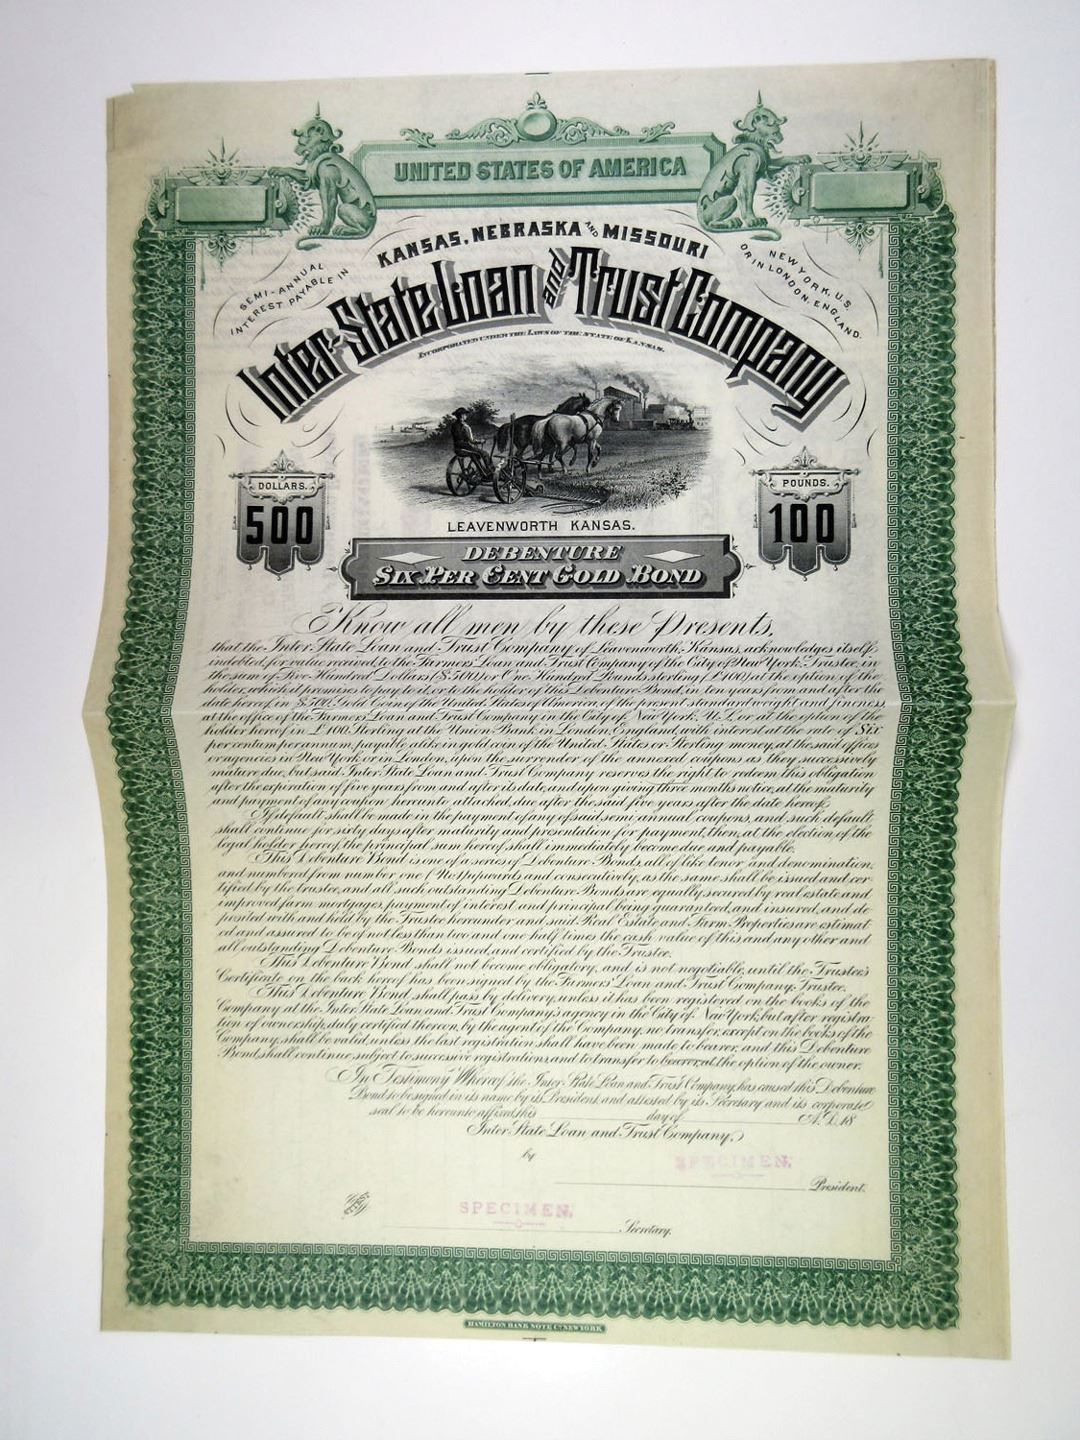 UNITED STATES OF AMERICA
KANSAS, NEBRASKA AND MISSOURI
SEMI-ANNUAL
INTEREST PAYABLE IN
NEW YORK, U.S.
OR IN LONDON, ENGLAND.
Inter-State Loan and Trust Company
INCORPORATED UNDER THE LAWS OF THE STATE OF KANSAS.
DOLLARS.
500
POUNDS.
100
LEAVENWORTH KANSAS.
DEBENTURE
SIX PER CENT GOLD BOND
Know all men by these Presents,
that the Inter State Loan and Trust Company of Leavenworth, Kansas, acknowledges itself
indebted, for value received, to the Farmers' Loan and Trust Company of the City of New York, Trustee, in
the sum of Five Hundred Dollars ($500) or One Hundred Pounds sterling (£100) at the option of the
holder, which it promises to pay to it, or to the holder of this Debenture Bond, in ten years from and after the
date hereof, in $500, Gold Coin of the United States of America, of the present standard weight and fineness,
at the office of the Farmers Loan and Trust Company in the City of New York, U.S., or at the option of the
holder hereof in £100 Sterling at the Union Bank in London, England, with interest at the rate of Six
per centum per annum, payable alike in gold coin of the United States or Sterling money, at the said offices
or agencies in New York or in London, upon the surrender of the annexed coupons as they successively
mature due, but said Inter State Loan and Trust Company reserves the right to redeem this obligation
after the expiration of five years from and after its date, and upon giving three months notice, at the maturity
and payment of any coupon hereunto attached, due after the said five years after the date hereof.
If default shall be made in the payment of any of said semi-annual coupons, and such default
shall continue for sixty days after maturity and presentation for payment, then, at the election of the
legal holder hereof, the principal sum hereof shall immediately become due and payable.
This Debenture Bond is one of a series of Debenture Bonds, all of like tenor and denomination,
and numbered from number one (No 1) upwards and consecutively, as the same shall be issued and cer-
tified by the trustee, and all such outstanding Debenture Bonds are equally secured by real estate and
improved farm mortgages, payment of interest and principal being guaranteed, and insured, and de-
posited with and held by the Trustee hereunder and said Real Estate and Farm Properties are estimat-
ed and assured to be of not less than two and one half times the cash value of this and any other and
all outstanding Debenture Bonds issued, and certified by the Trustee.
This Debenture Bond shall not become obligatory, and is not negotiable, until the Trustee's
Certificate on the back hereof has been signed by the Farmers' Loan and Trust Company, Trustee.
This Debenture Bond, shall pass by delivery, unless it has been registered on the books of the
Company at the Inter State Loan and Trust Company's agency in the City of New York, but after registra-
tion of ownership, duly certified thereon, by the agent of the Company, no transfer, except on the books of the
Company, shall be valid, unless the last registration shall have been made to bearer, and this Debenture
Bond, shall continue subject to successive registrations, and to transfer to bearer, at the option of the owner.
In Testimony Whereof, the Inter State Loan and Trust Company, has caused this Debenture
Bond to be signed in its name by its President, and attested by its Secretary and its corporate
seal to be hereunto affixed, this day of A.D. 18
Inter State Loan and Trust Company,
by
SPECIMEN.
President.
SPECIMEN.
Secretary.
HAMILTON BANK NOTE CO. NEW YORK